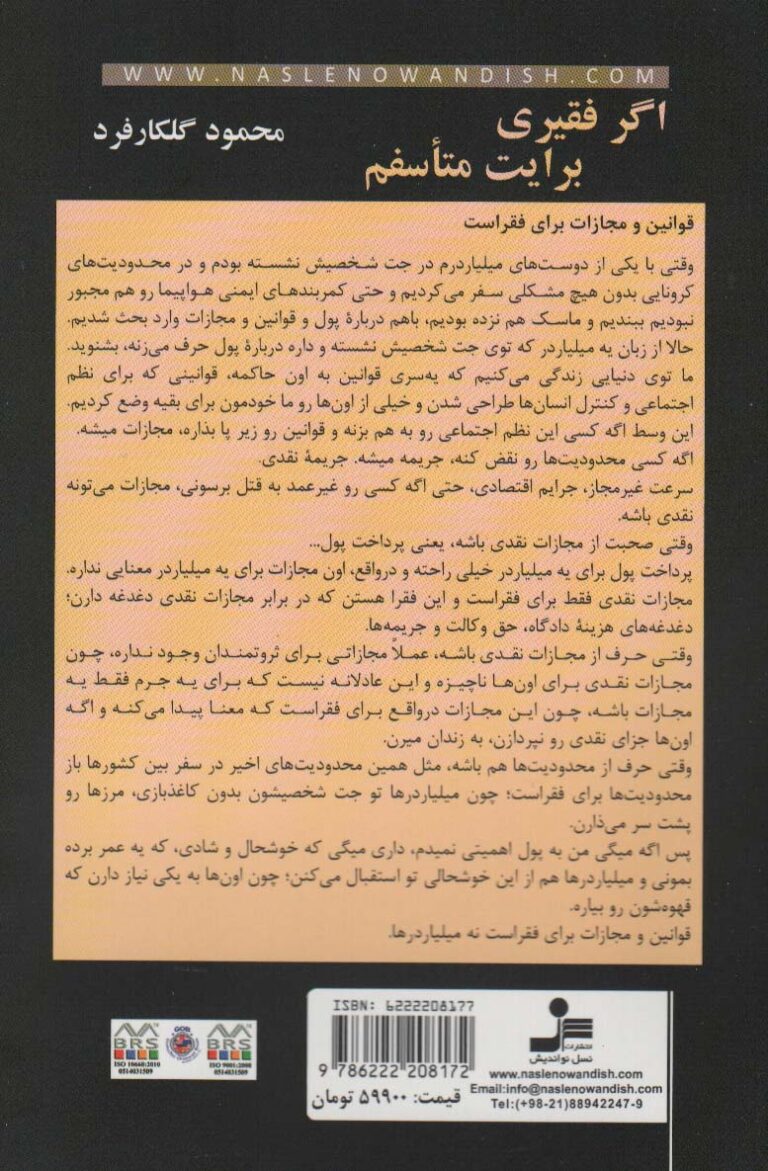 WWW.NASLENOWANDISH.COM
اگر فقیری
برایت متأسفم
محمود گلکارفرد
قوانین و مجازات برای فقراست
وقتی با یکی از دوست‌های میلیاردرم در جت شخصیش نشسته بودم و در محدودیت‌های
کرونایی بدون هیچ مشکلی سفر می‌کردیم و حتی کمربندهای ایمنی هواپیما رو هم مجبور
نبودیم ببندیم و ماسک هم نزده بودیم، باهم دربارهٔ پول و قوانین و مجازات وارد بحث شدیم.
حالا از زبان یه میلیاردر که توی جت شخصیش نشسته و داره دربارهٔ پول حرف می‌زنه، بشنوید.
ما توی دنیایی زندگی می‌کنیم که یه‌سری قوانین به اون حاکمه، قوانینی که برای نظم
اجتماعی و کنترل انسان‌ها طراحی شدن و خیلی از اون‌ها رو ما خودمون برای بقیه وضع کردیم.
این وسط اگه کسی این نظم اجتماعی رو به هم بزنه و قوانین رو زیر پا بذاره، مجازات میشه.
اگه کسی محدودیت‌ها رو نقض کنه، جریمه میشه. جریمهٔ نقدی.
سرعت غیرمجاز، جرایم اقتصادی، حتی اگه کسی رو غیرعمد به قتل برسونی، مجازات می‌تونه
نقدی باشه.
وقتی صحبت از مجازات نقدی باشه، یعنی پرداخت پول...
پرداخت پول برای یه میلیاردر خیلی راحته و درواقع، اون مجازات برای یه میلیاردر معنایی نداره.
مجازات نقدی فقط برای فقراست و این فقرا هستن که در برابر مجازات نقدی دغدغه دارن؛
دغدغه‌های هزینهٔ دادگاه، حق وکالت و جریمه‌ها.
وقتی حرف از مجازات نقدی باشه، عملاً مجازاتی برای ثروتمندان وجود نداره، چون
مجازات نقدی برای اون‌ها ناچیزه و این عادلانه نیست که برای یه جرم فقط یه
مجازات باشه، چون این مجازات درواقع برای فقراست که معنا پیدا می‌کنه و اگه
اون‌ها جزای نقدی رو نپردازن، به زندان میرن.
وقتی حرف از محدودیت‌ها هم باشه، مثل همین محدودیت‌های اخیر در سفر بین کشورها باز
محدودیت‌ها برای فقراست؛ چون میلیاردرها تو جت شخصیشون بدون کاغذبازی، مرزها رو
پشت سر می‌ذارن.
پس اگه میگی من به پول اهمیتی نمیدم، داری میگی که خوشحال و شادی، که یه عمر برده
بمونی و میلیاردرها هم از این خوشحالی تو استقبال می‌کنن؛ چون اون‌ها به یکی نیاز دارن که
قهوه‌شون رو بیاره.
قوانین و مجازات برای فقراست نه میلیاردرها.
BRS
ISO 10668:2010
0514031509
BRS
ISO 9001:2008
0514031509
ISBN: 6222208177
9 786222 208172
قیمت: ۵۹۹۰۰ تومان
انتشارات
نسل نواندیش
www.naslenowandish.com
Email:info@naslenowandish.com
Tel:(+98-21)88942247-9